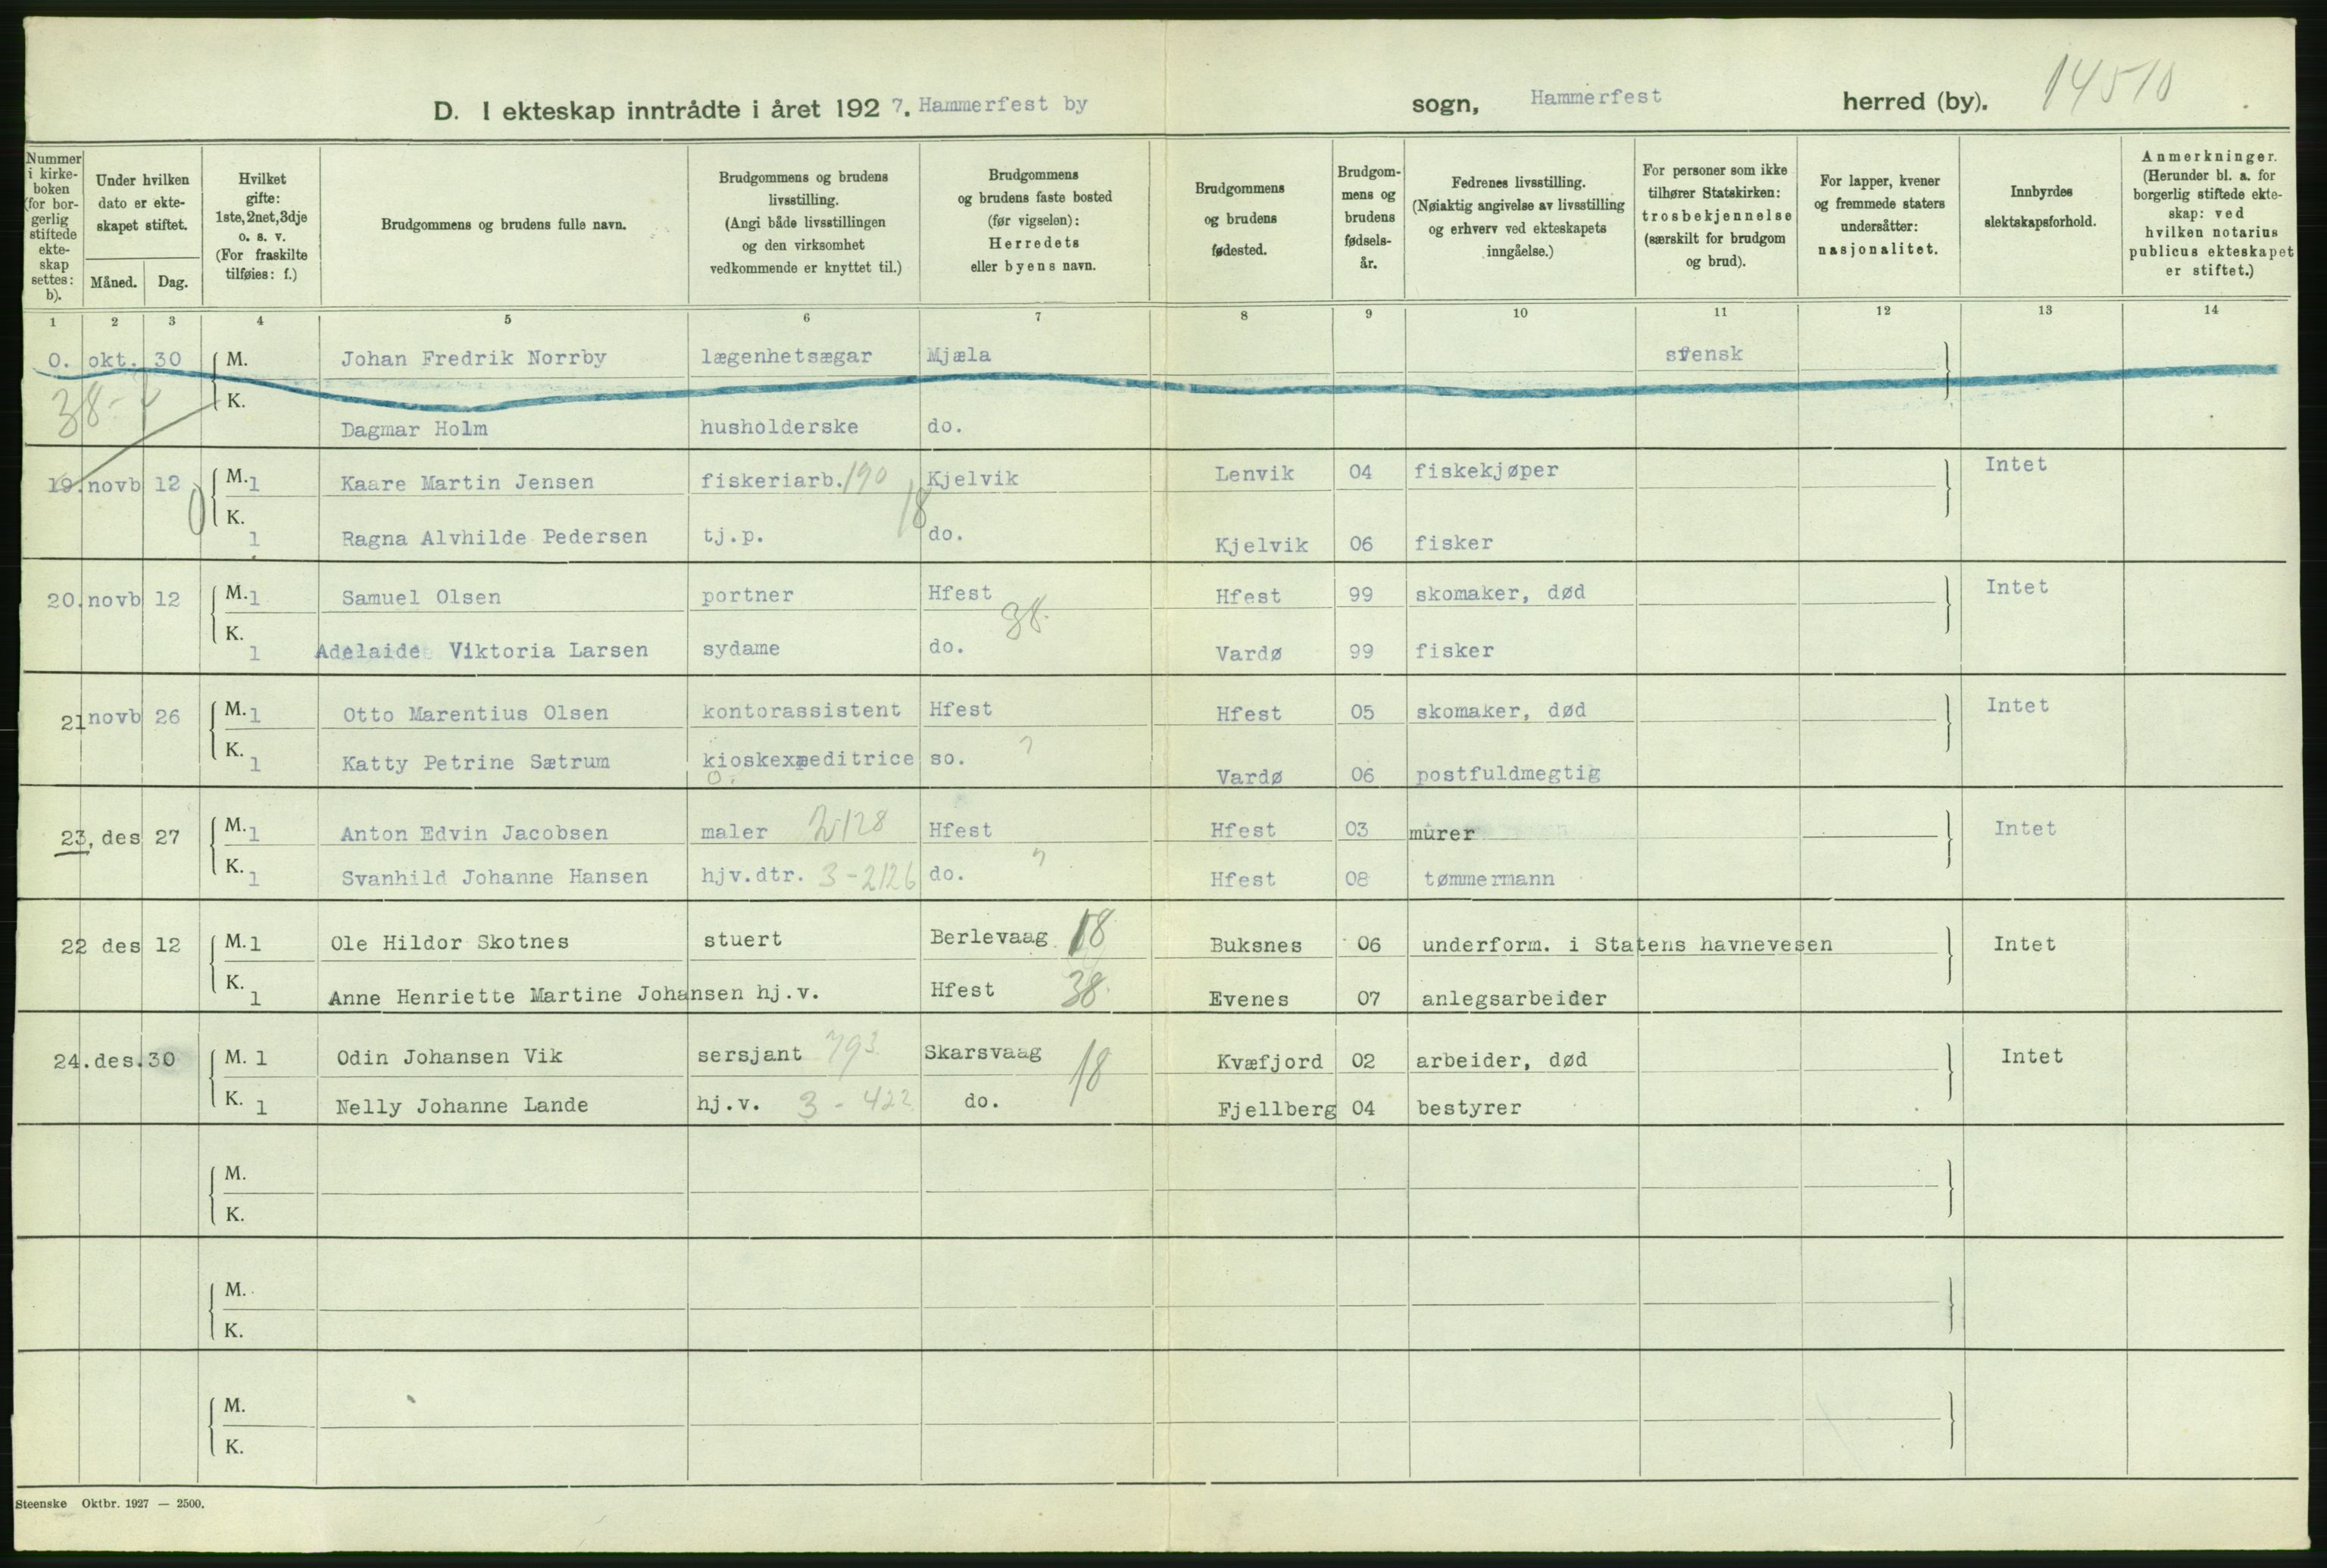 D. I ekteskap inntrådte i året 1927. Hammerfest by sogn, Hammerfest herred (by). 14510
Nummer i kirkeboken (for borgerlig stiftede ekteskap settes: b).
Under hvilken dato er ekteskapet stiftet.
Måned. Dag.
Hvilket gifte: 1ste, 2net, 3dje o. s. v. (For fraskilte tilføies: f.)
Brudgommens og brudens fulle navn.
Brudgommens og brudens livsstilling. (Angi både livsstillingen og den virksomhet vedkommende er knyttet til.)
Brudgommens og brudens faste bosted (før vigselen): Herredets eller byens navn.
Brudgommens og brudens fødested.
Brudgommens og brudens fødselsår.
Fedrenes livsstilling. (Nøiaktig angivelse av livsstilling og erhverv ved ekteskapets inngåelse.)
For personer som ikke tilhører Statskirken: trosbekjennelse (særskilt for brudgom og brud).
For lapper, kvener og fremmede staters undersåtter: nasjonalitet.
Innbyrdes slektskapsforhold.
Anmerkninger. (Herunder bl. a. for borgerlig stiftede ekteskap: ved hvilken notarius publicus ekteskapet er stiftet.)
1 2 3 4 5 6 7 8 9 10 11 12 13 14
0. okt. 30 M. Johan Fredrik Norrby lægenhetsægar Mjæla svensk
38- K. Dagmar Holm husholderske do.
19. novb 12 M. 1 Kaare Martin Jensen fiskeriarb. 190 Kjelvik Lenvik 04 fiskekjøper Intet
0 K. 1 Ragna Alvhilde Pedersen tj.p. 18 do. Kjelvik 06 fisker
20. novb 12 M. 1 Samuel Olsen portner Hfest 38. Hfest 99 skomaker, død Intet
K. 1 Adelaide Viktoria Larsen sydame do. Vardø 99 fisker
21 novb 26 M. 1 Otto Marentius Olsen kontorassistent Hfest Hfest 05 skomaker, død Intet
K. 1 Katty Petrine Sætrum kioskexpeditrice so. ? Vardø 06 postfuldmegtig
23, des 27 M. 1 Anton Edvin Jacobsen maler 2128 Hfest Hfest 03 murer Intet
K. 1 Svanhild Johanne Hansen hjv.dtr. 3-2126 do. ? Hfest 08 tømmermann
22 des 12 M. 1 Ole Hildor Skotnes stuert Berlevaag 18 Buksnes 06 underform. i Statens havnevesen Intet
K. 1 Anne Henriette Martine Johansen hj.v. Hfest 38. Evenes 07 anlegsarbeider
24. des. 30 M. 1 Odin Johansen Vik sersjant 793 Skarsvaag 18 Kvæfjord 02 arbeider, død Intet
K. 1 Nelly Johanne Lande hj.v. 3-422 do. Fjellberg 04 bestyrer
M.
K.
M.
K.
M.
K.
Steenske Oktbr. 1927 — 2500.